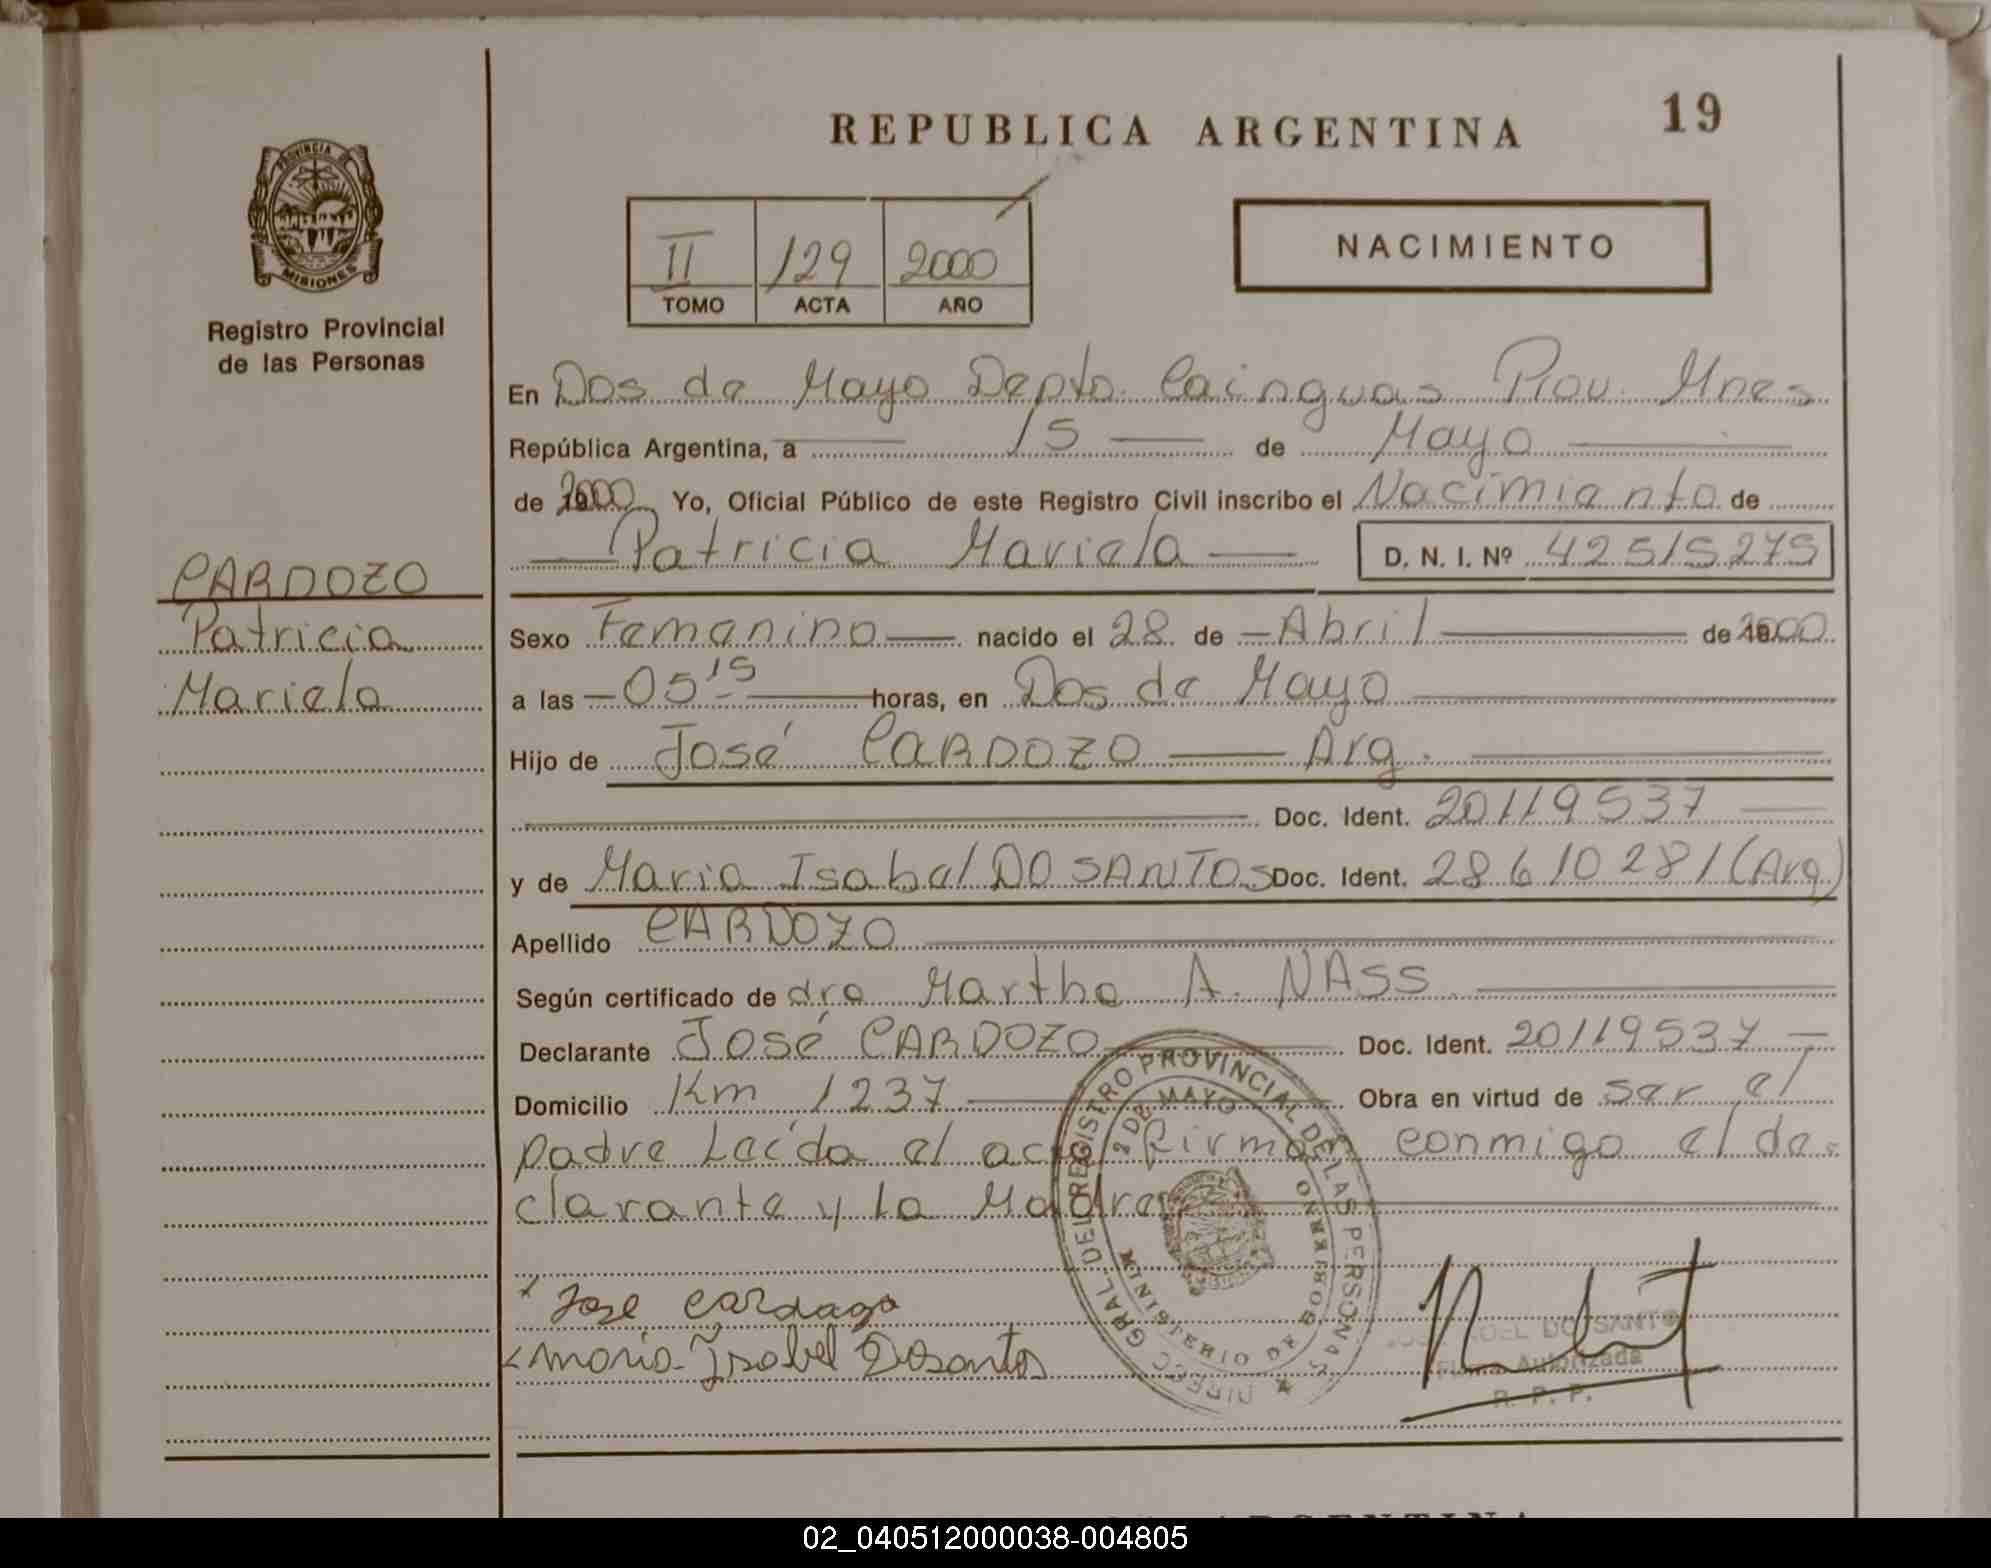 REPUBLICA ARGENTINA 19
PROVINCIA DE
MISIONES
Registro Provincial
de las Personas
II 129 2000
TOMO ACTA AÑO
NACIMIENTO
En Dos de Mayo Depto. Cainguas Prov. Mnes
República Argentina, a 15 de Mayo
de 2000 Yo, Oficial Público de este Registro Civil inscribo el Nacimiento de
Patricia Mariela D. N. I. Nº 42515275
CARDOZO
Patricia
Mariela
Sexo Femenino nacido el 28 de Abril de 2000
a las 05 15 horas, en Dos de Mayo
Hijo de José CARDOZO Arg.
Doc. Ident. 20119537
y de Maria Isabel DO SANTOS Doc. Ident. 28610281 (Arg)
Apellido CARDOZO
Según certificado de dra Martha A. NASS
Declarante José CARDOZO Doc. Ident. 20119537
Domicilio Km 1237 Obra en virtud de ser el
padre Leída el acta firman conmigo el de-
clarante y la Madre
DIRECC GRAL DEL REGISTRO PROVINCIAL DE LAS PERSONAS
2 DE MAYO
MINISTERIO DE GOBIERNO
Jose Cardozo
Maria Isabel Dosantos
DO SANTO
Firma Autorizada
R. P. P.
ARGENTINA
02_040512000038-004805